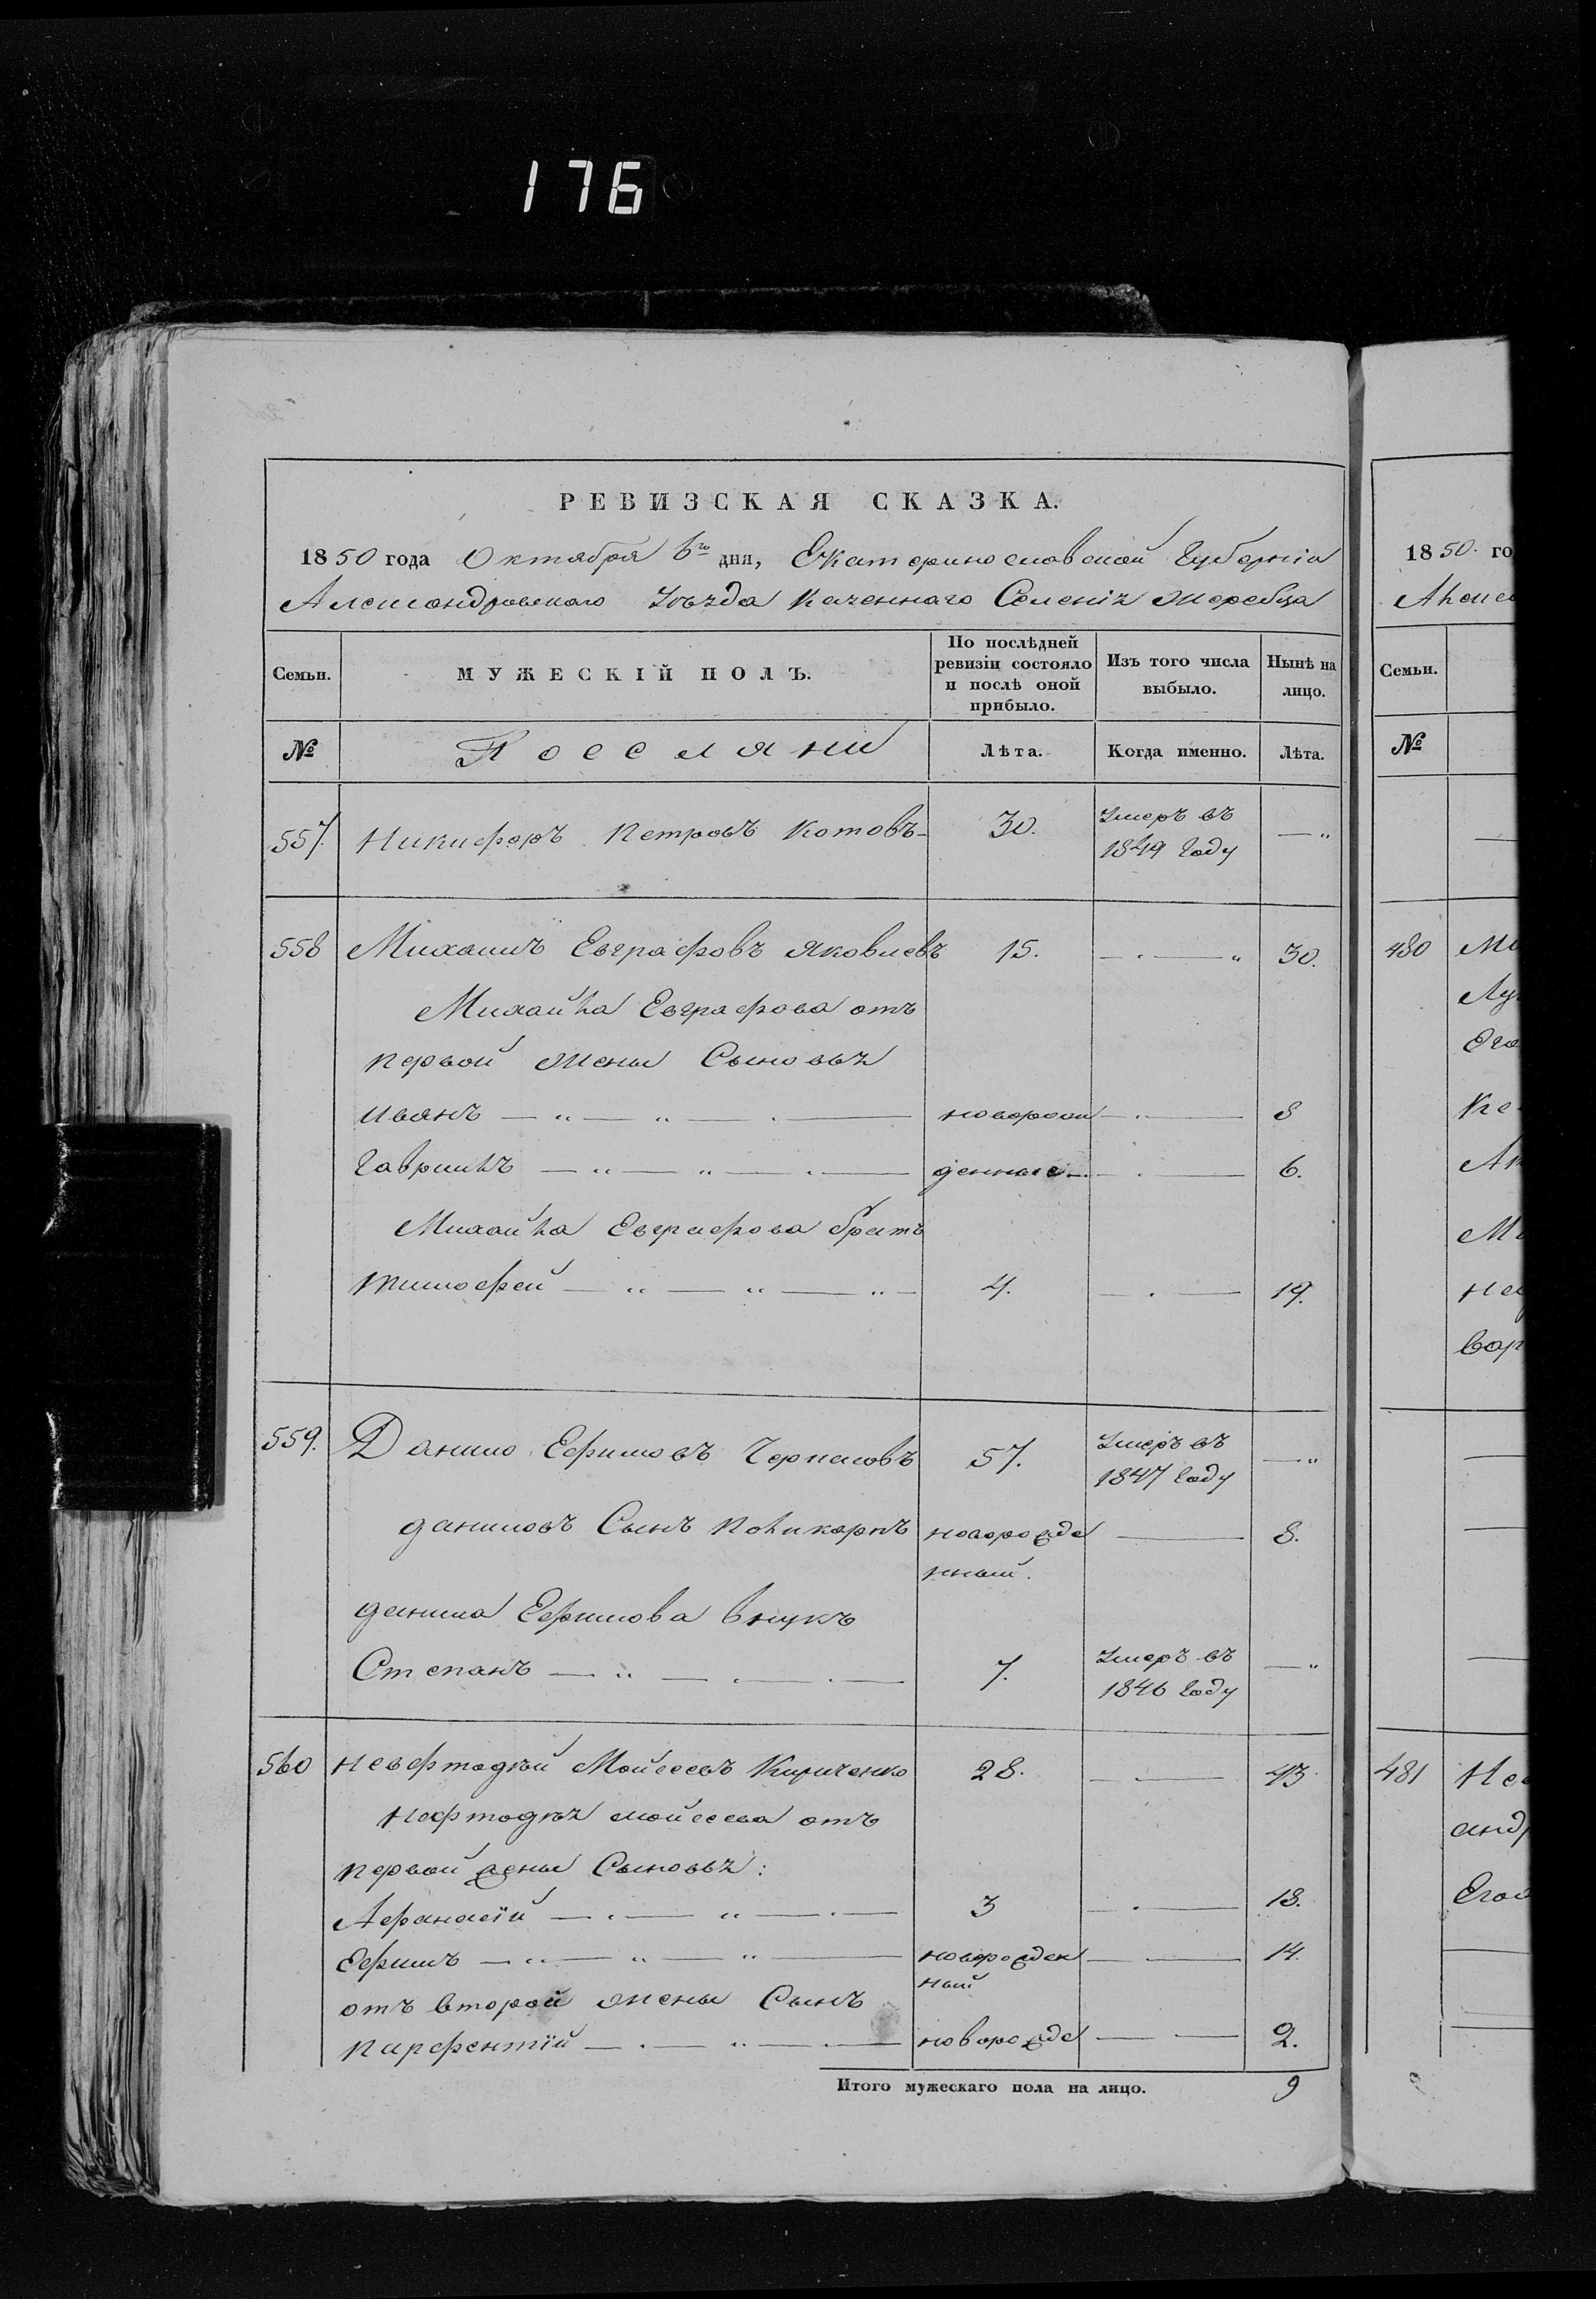 176
РЕВИЗСКАЯ СКАЗКА.
1850 года Октября 6го дня, Екатеринославской Губерніи
Александровскаго Уѣзда Казеннаго Селенія Жеребца
Семьи. МУЖЕСКІЙ ПОЛЪ. По послѣдней ревизіи состояло и послѣ оной прибыло. Изъ того числа выбыло. Нынѣ на лицо.
№ Поселяни Лѣта. Когда именно. Лѣта.
557. Никифоръ Петровъ Котовъ 30. Умеръ въ 1849 Году — „
558 Михаилъ Евграфовъ Яковлевъ 15. — „ 30.
Михайла Евграфова отъ
первой жены Сыновья
Иванъ — „ — „ — новорож — 8
Гаврила — „ — „ — денные — 6.
Михайла Евграфова братъ
Тимофей — „ — „ — „ 4. — 19.
559. Данило Ефимовъ 57. Умеръ въ 1847 Году — „
даниловъ Сынъ Поликарпъ новорожде — 8.
нный.
данила Ефимова внукъ
Степанъ — „ — 7. Умеръ въ 1846 Году — „
560 Невфтодѣй Мойсеевъ Кириченко 28. — 43.
Нефтодѣя мойсеева отъ
первой жены Сыновья:
Афанасій — „ — 3 — 18.
Ефимъ — „ — „ — „ — новорожден — 14.
ный
отъ второй жены Сынъ
парфентій — „ — новорожде — 2.
Итого мужескаго пола на лицо. 9
1850. го
Семьи.
№
480
481